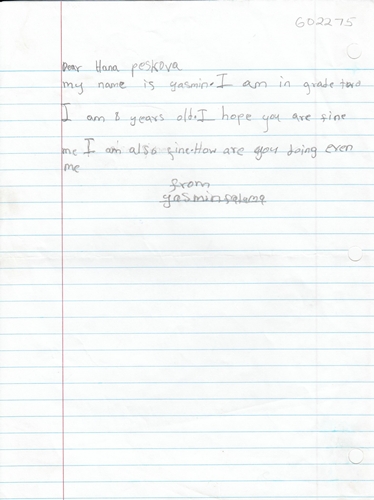 G02275
Dear Hana peskova
my name is yasmin. I am in grade two
I am 8 years old. I hope you are fine
me I am also fine. How are you doing even
me
from
yasmin saluma